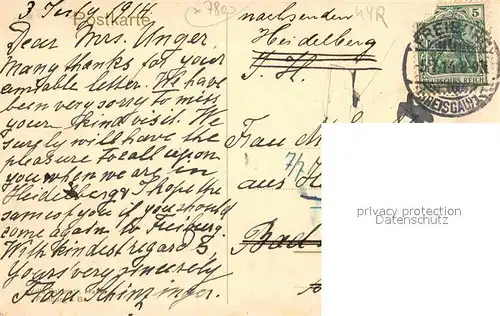 3 July 1914.
Postkarte
Dear Mrs. Unger,
Many thanks for your
amiable letter. We have
been very sorry to miss
your kind visit. We
surely will have the
pleasure to call upon
you when we are in
Heidelberg & I hope the
same of you if you should
come again to Freiburg.
With kindest regards,
Yours very sincerely
Flora Schinzinger.
7890
44R
nachsenden
Heidelberg
Frau
7/7
aus
Bad
5
DEUTSCHES REICH
privacy protection
Datenschutz